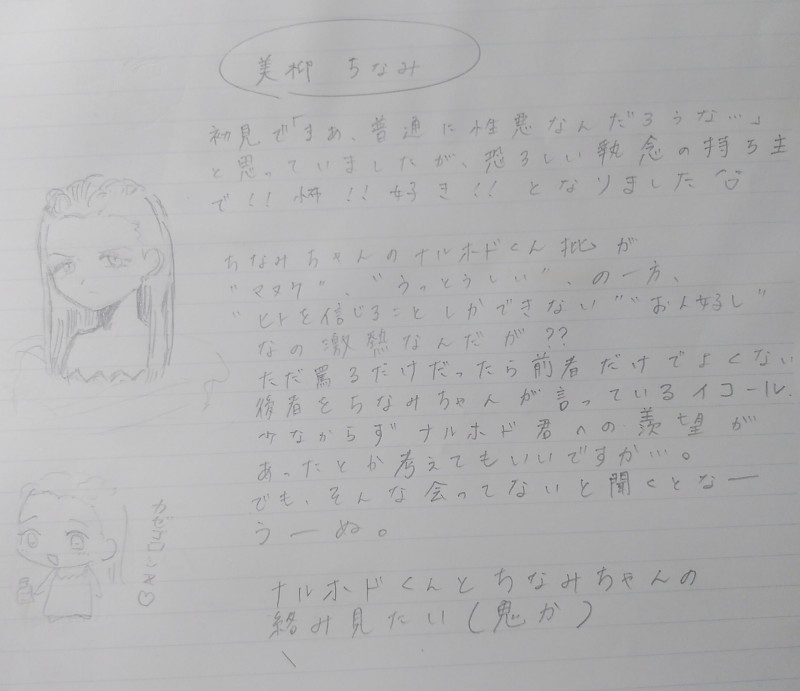 美柳 ちなみ
初見で「まあ、普通に性悪なんだろうな…」
と思っていましたが、恐ろしい執念の持ち主
で!! 怖!! 好き!! となりました
ちなみちゃんのナルホドくん批が
"マヌケ"、"うっとうしい"、の一方、
"ヒトを信じることしかできない""お人好し"
なの激熱なんだが??
ただ罵るだけだったら前者だけでよくない
後者をちなみちゃんが言っているイコール、
少なからずナルホド君への羨望が
あったとか考えてもいいですか…。
でも、そんな会ってないと聞くとなー
うーぬ。
ナルホドくんとちなみちゃんの
絡み見たい(鬼か)
カゼゴロシ♡